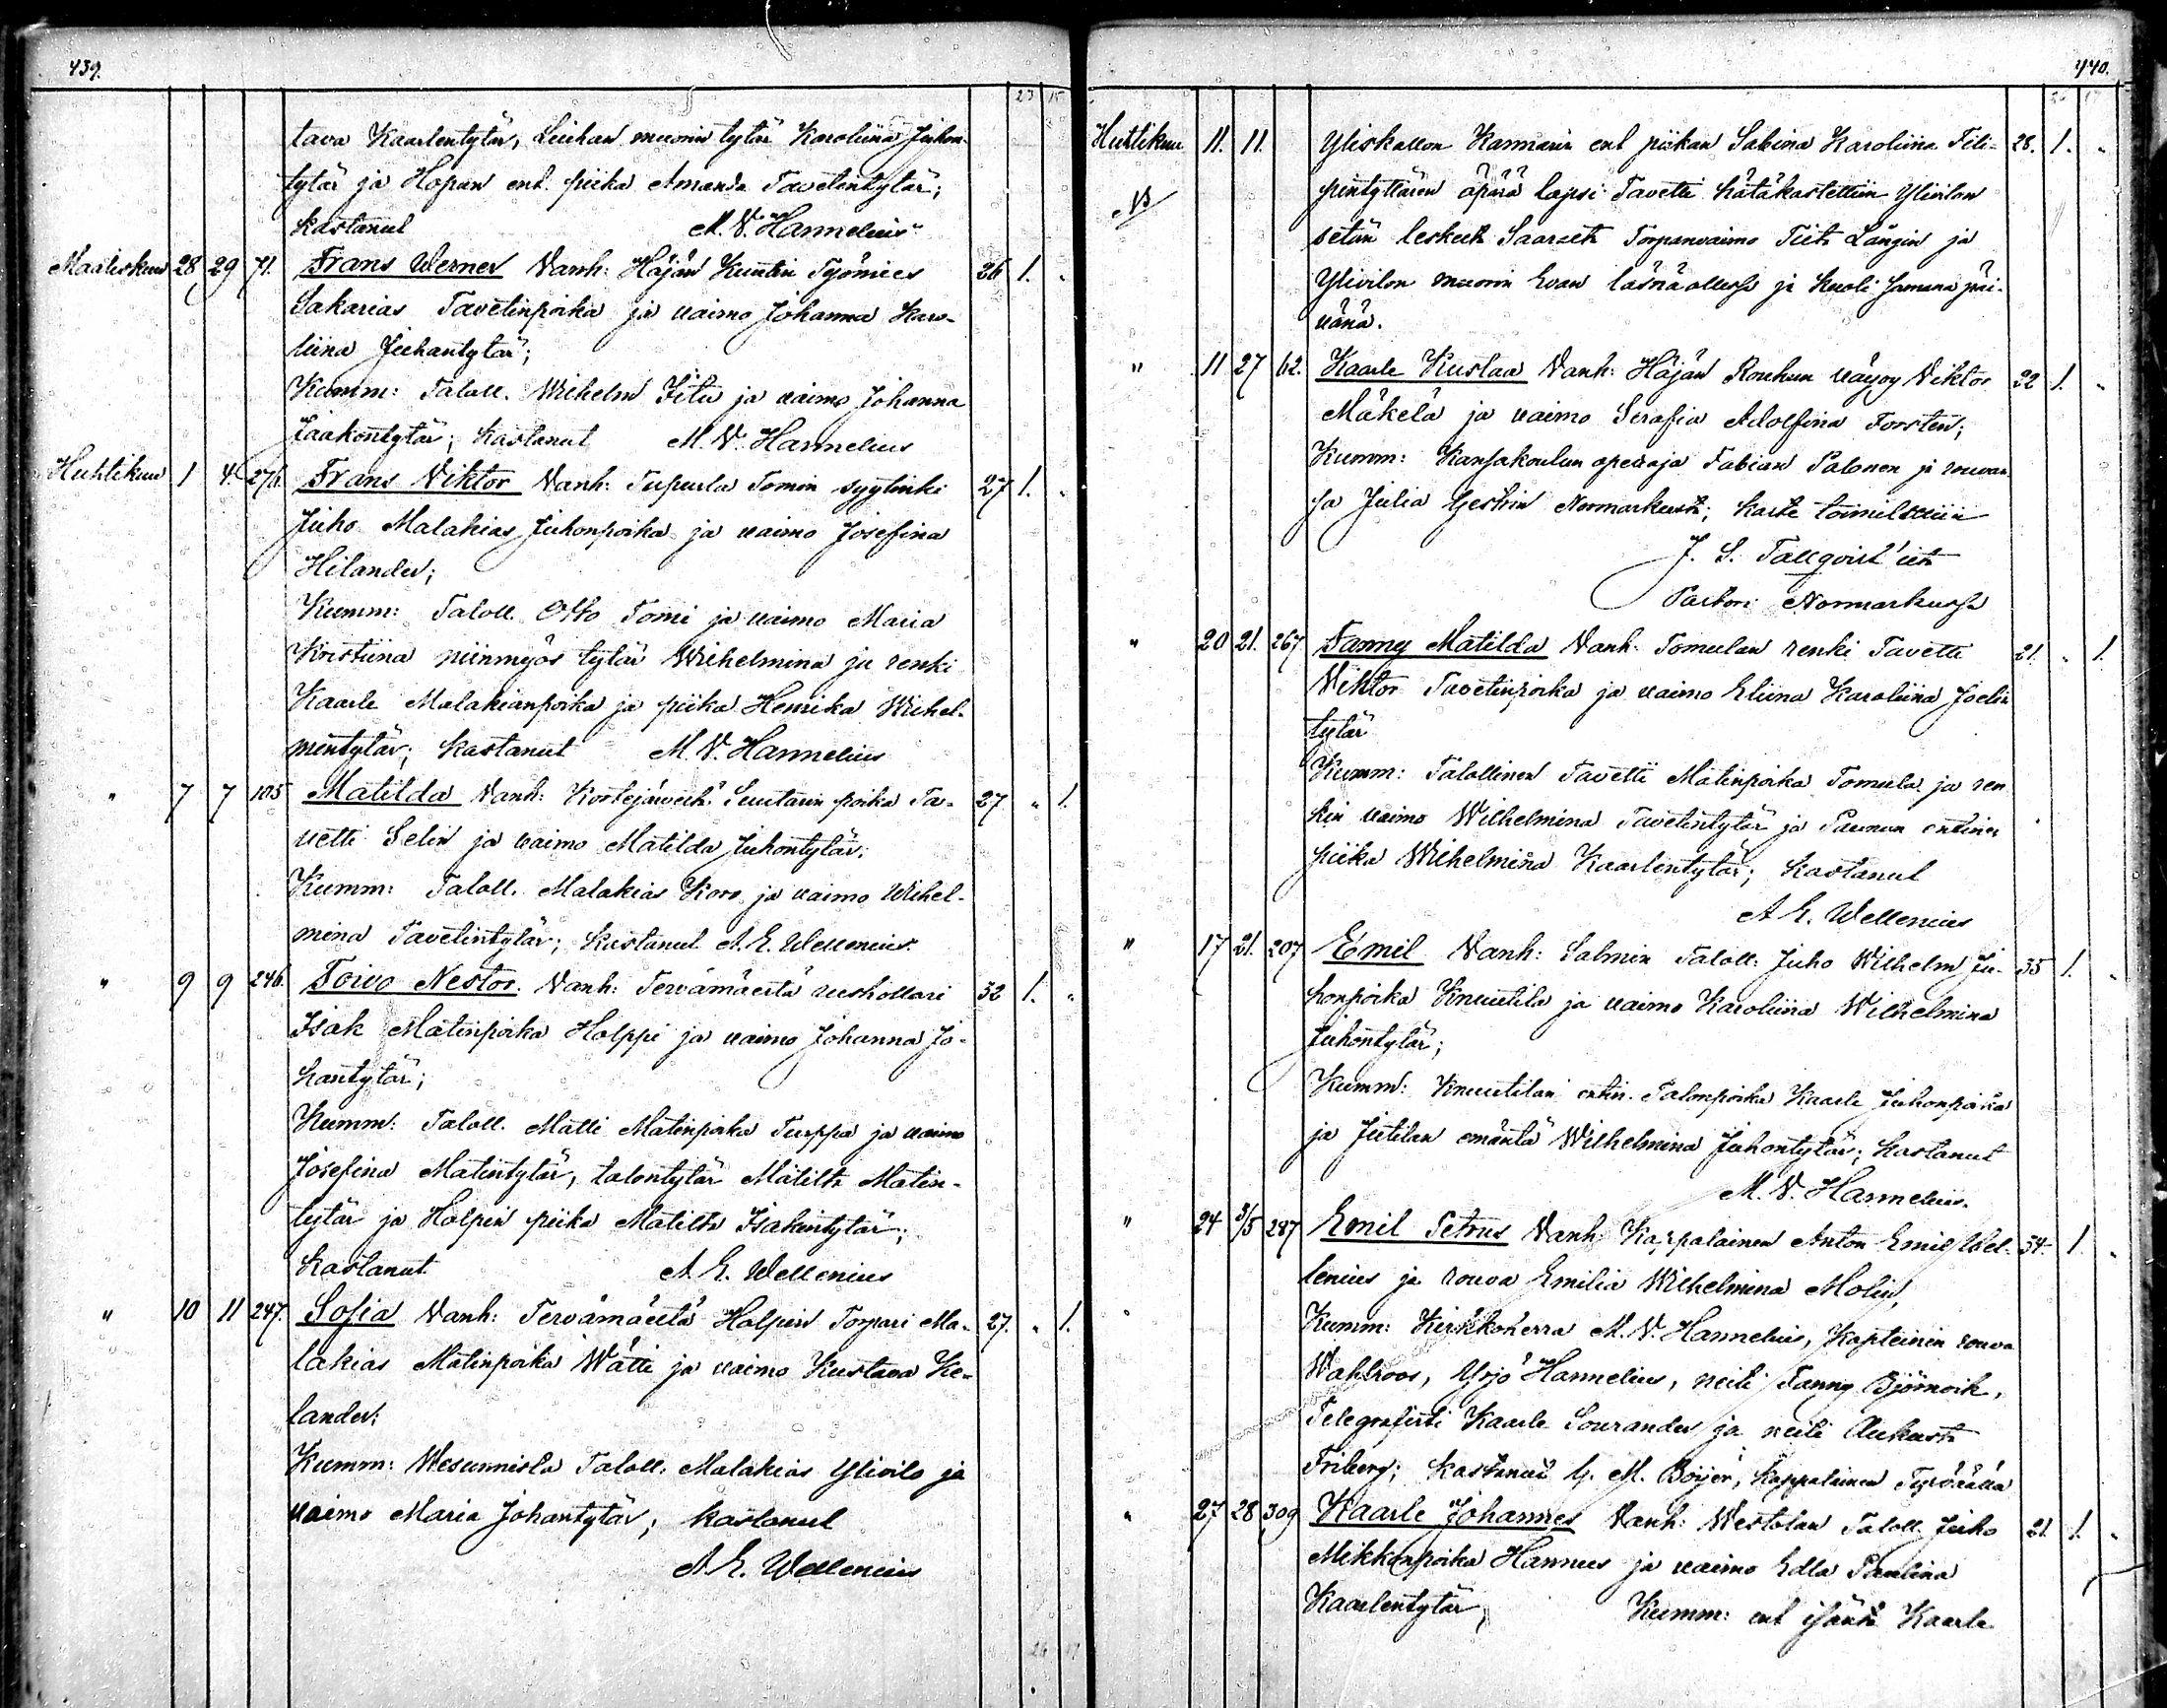 439.
23 15
tava Kaarlentytär, Liuhan muorin tytär Karoliina Juhon-
tytär ja Hopun ent. piika Amanda Tavetintytär;
kastanut M. V. Hannelius
Maaliskuu 28 29 71. Frans Werner Vanh: Häjän Kuntin Työmies 26 1. "
Sakarias Tavetinpoika ja vaimo Johanna Karo-
liina Juhantytär;
Kumm: Taloll. Wihelm Iitu ja vaimo Johanna
Jaakontytär; kastanut M. V. Hannelius
Huhtikuu 1 4. 276. Frans Viktor Vanh: Tupurla Tomin syytinki 27 1. "
Juho Malakias Juhonpoika ja vaimo Josefina
Hilander;
Kumm: Taloll. Otto Tomi ja vaimo Maria
Kristiina niinmyös tytär Wihelmina ja renki
Kaarle Malakianpoika ja piika Henrika Wihel-
mintytär; kastanut M. V. Hannelius
" 7 7 105 Matilda Vanh: Suutarin poika Ta- 27 " 1.
vetti Selin ja vaimo Matilda Juhontytär;
Kumm: Taloll. Malakias Koro ja vaimo Wihel-
mina Tavetintytär; kastanut A. E. Wellenius
" 9 9 246. Toivo Nestor. Vanh: Tervämäestä reeskollari 32 1. "
Isak Matinpoika Holppi ja vaimo Johanna Jo-
hantytär;
Kumm: Taloll. Matti Matinpoika Turppa ja vaimo
Josefina Matintytär, talontytär Matilda Matin-
tytär ja Holpin piika Matilda Isakintytär;
kastanut A. E. Wellenius
" 10 11 247. Sofia Vanh: Tervämäestä Holpin Torpari Ma- 27. " 1.
lakias Matinpoika Wätti ja vaimo Kustava Ke-
lander;
Kumm: Wesunnisla Taloll. Malakias Ylivilo ja
vaimo Maria Johantytär; kastanut
A. E. Wellenius
26 19
440.
26 17
Huhtikuu 11. 11. Yliskallon Kammarin ent piikan Sabina Karoliina Fili- 28. 1. "
NB pintyttären äpärä lapsi Tavetti hätäkastettiin Ylivilon
setän lesken Saaran Torpanvaimo Tiita Långin ja
Ylivilon muorin Evan läsnäollessa ja kuoli samana päi-
vänä.
" 11 27 62. Kaarle Kustaa Vanh: Häjän Rouhun vävyy Viktor 22 1. "
Mäkelä ja vaimo Serafia Adolfina Forstén;
Kumm: Kansakoulun opettaja Fabian Salonen ja rouvan-
sa Julia Gestrin Normarkusta; kaste toimitettiin
J. S. Tallqvist'ilta
Pastori Normarkussa
" 20 21. 267 Fanny Matilda Vanh: Tomulan renki Tavetti 21. " 1.
Viktor Tavetinpoika ja vaimo Eliina Karoliina Joelin
tytär
Kumm: Talollinen Tavetti Matinpoika Tomula ja ren
kin vaimo Wilhelmina Tavetintytär ja Paunun entinen
piika Wihelmina Kaarlentytär; kastanut
A. E. Wellenius
" 17 21. 207 Emil Vanh: Salmin Taloll: Juho Wilhelm Ju- 35 1. "
honpoika Knuutila ja vaimo Karoliina Wilhelmina
Juhontytär;
Kumm: Knuutilan entin. Talonpoika Kaarle Juhonpoika
ja Jutilan emäntä Wilhelmina Juhontytär; kastanut
M. V. Hannelius.
" 24 3/5 287 Emil Petrus Vanh: Kappalainen Anton Emil Wel- 34. 1. "
lenius ja rouva Emilia Wilhelmina Molin,
Kumm: Kirkkoherra M. V. Hannelius, Kapteinin rouva
Wahlroos, Yrjö Hannelius, neiti Fanny Björnvik,
Telegrafisti Kaarle Sourander ja neiti Aukusta
Friberg; kastanut G. M. Boijer, kappalainen Tyrväällä
" 27 28 309 Kaarle Johannes Vanh: Westolan Taloll. Juho 21. 1. "
Mikkonpoika Hannus ja vaimo Edla Paulina
Kaarlentytär; Kumm: ent isäntä Kaarle